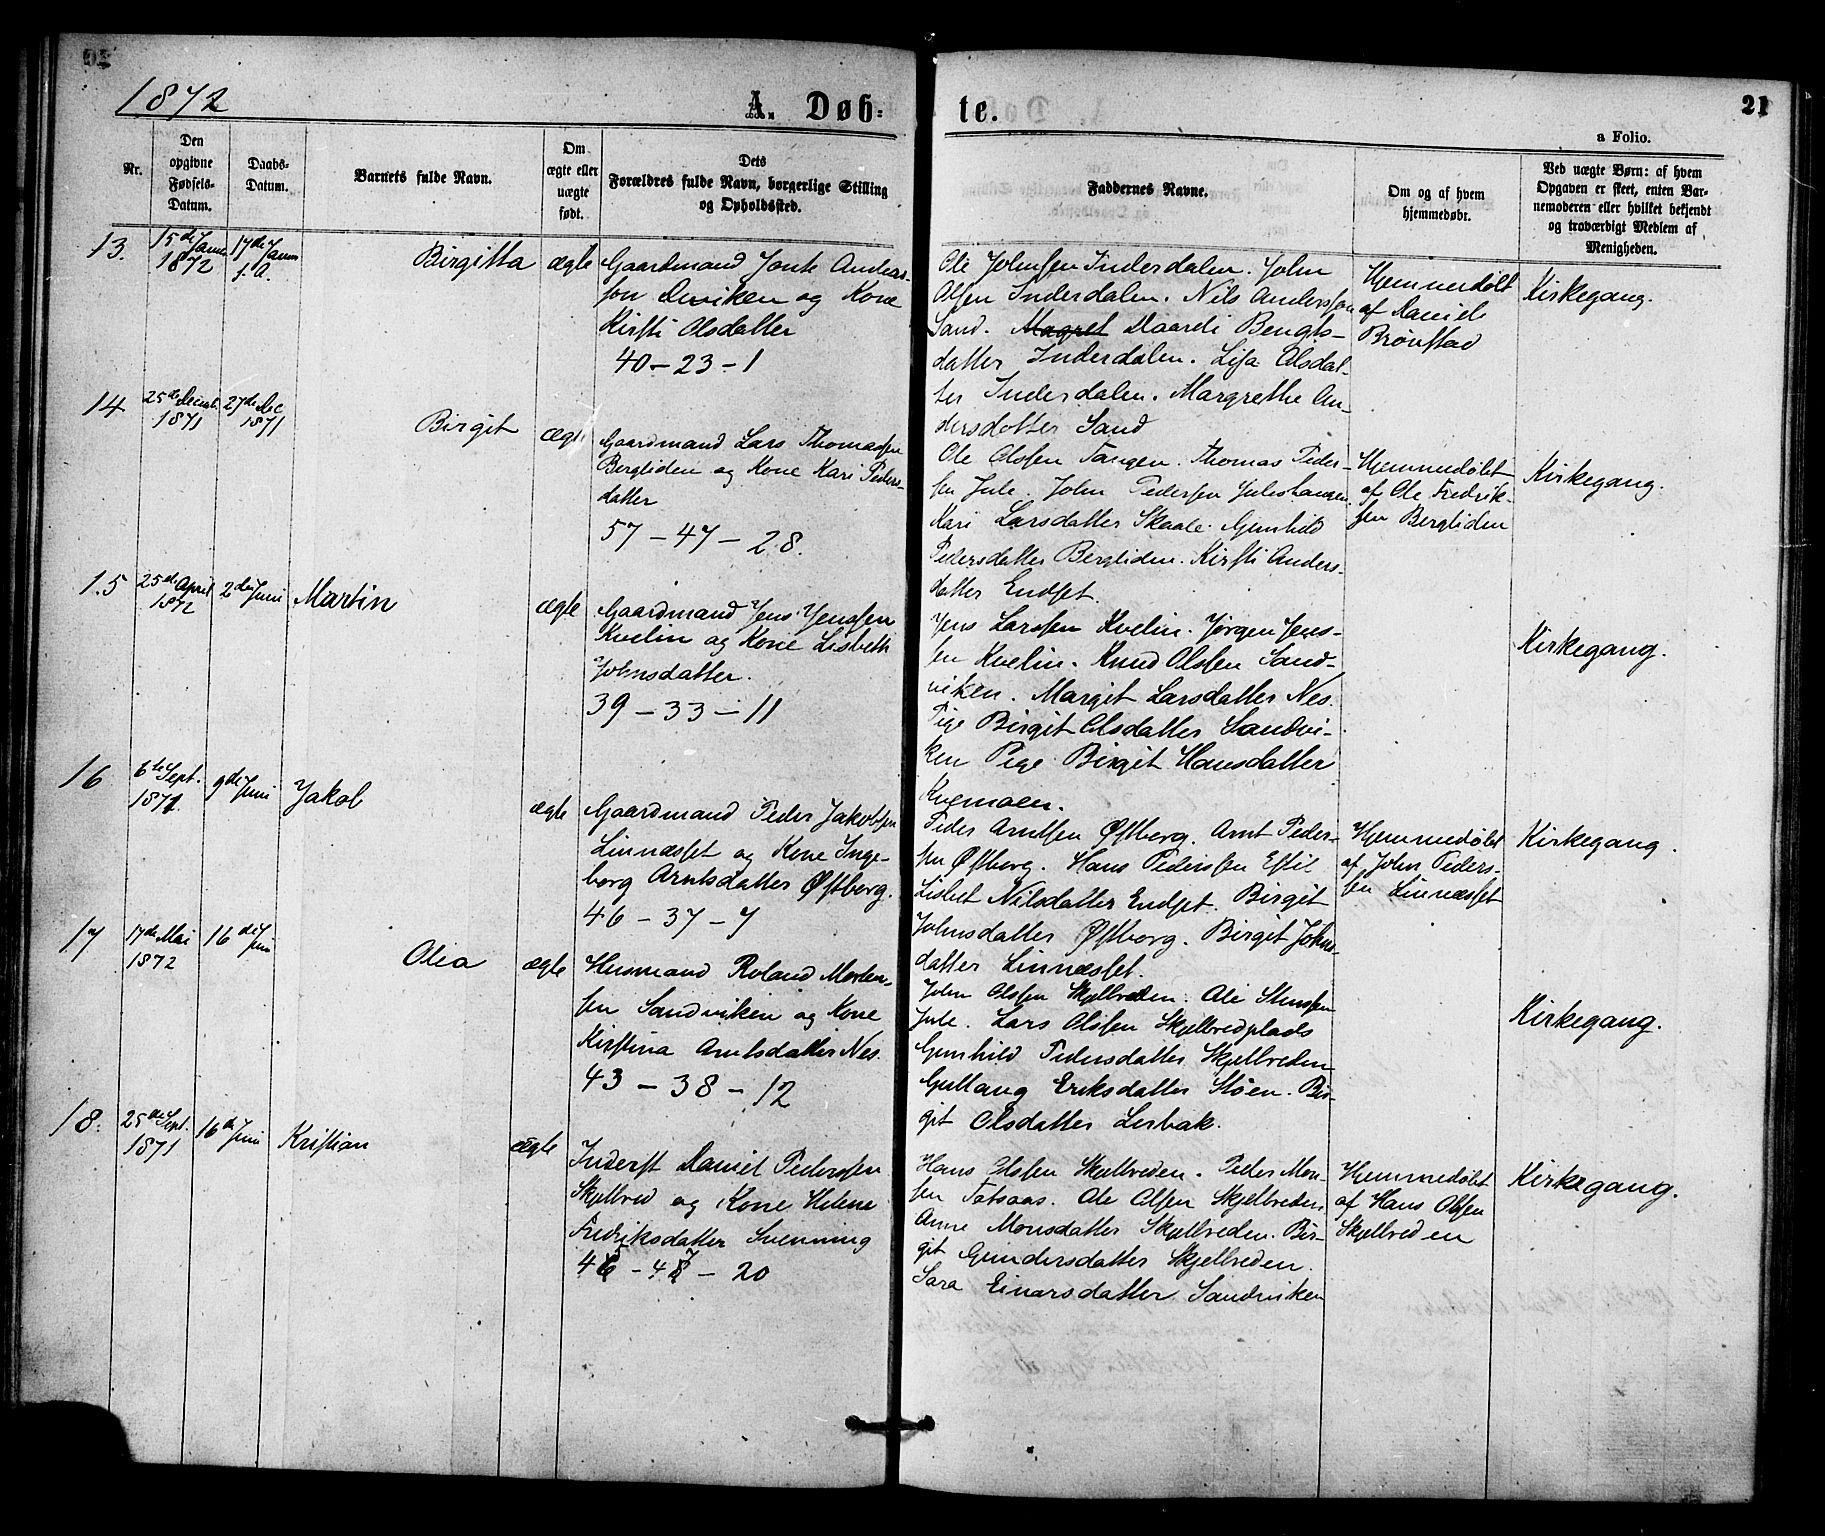 1872
A. Døb-
te.
21
a Folio.
Nr.
Den opgivne Fødsels-Datum.
Daabs-Datum.
Barnets fulde Navn.
Om ægte eller uægte født.
Dets Forældres fulde Navn, borgerlige Stilling og Opholdssted.
Faddernes Navne.
Om og af hvem hjemmedøbt.
Ved uægte Børn: af hvem Opgaven er skeet, enten Barnemoderen eller hvilket bekjendt og troværdigt Medlem af Menigheden.
13.
15de Janu.
1872
17de Janu
s. A.
Birgitta
ægte
Gaardmand Jonte Anders-
sen Deviken og Kone
Kirsti Olsdatter
40 - 23 - 1
Ole Johnsen Inderdalen. John
Olsen Inderdalen. Nils Anderssen
Sand. Magret Daardi Bengts-
datter Inderdalen. Lisa Olsdat-
ter Inderdalen. Margrethe An-
dersdatter Sand
Hjemmedøbt
af Daniel
Brønstad
Kirkegang.
14
25de Decmb.
1871
27de Dec
1871
Birgit
ægte
Gaardmand Lars Thomassen
Bergliden og Kone Kari Peders-
datter
57 - 47 - 28.
Ole Olssen Tangen. Thomas Peder-
sen Jule. John Pedersen Juleshaugen
Kari Larsdatter Skaale. Gunhild
Pedersdatter Bergliden. Kirsti Anders-
datter Endset.
Hjemmedøbt
af Ole Fredrik-
sen Bergliden
Kirkegang.
15
25de April
1872
2de Juni
Martin
ægte
Gaardmand Jens Jenssen
Kvelin og Kone Lisbeth
Johnsdatter.
39 - 33 - 11
Jens Larssen Kvelin. Jørgen Jens-
sen Kvelin. Knud Olssen Sand-
viken. Margit Larsdatter Nes.
Pige Birgit Olsdatter Sandvi-
ken Pige Birgit Hansdatter
Kvemoen.
Kirkegang.
16
6te Sept.
1871.
9de Juni
Jakob
ægte
Gaardmand Peder Jakobsen
Linnæsset og Kone Inge-
borg Arntsdatter Østborg.
46 - 37 - 7
Peder Arntsen Østborg. Arnt Peder-
sen Østborg. Hans Pederssen Estil
Lisbet Nilsdatter Endset. Birgit
Johnsdatter Østborg. Birgit Johns-
datter Linnæsset.
Hjemmedøbt
af John Peders-
sen Linnæsset
Kirkegang.
17
17de Mai
1872
16de Juni
Olea
ægte
Husmand Roland Morten-
sen Sandviken og Kone
Kirstina Arntsdatter Nes.
43 - 38 - 12
John Olssen Skjelbreden. Ole Stenssen
Jule. Lars Olssen Skjelbredplads
Gunhild Pedersdatter Skjelbreden
Gullaug Eriksdatter Støen. Bir-
git Olsdatter Lerbak.
Kirkegang.
18.
25de Sept.
1871
16de Juni
Kristian
ægte
Inderst Daniel Pederssen
Skjelbred og Kone Helena
Fredriksdatter Svenning
46 - 47 - 20
Hans Olssen Skjelbreden. Peder Mon-
sen Totsaas. Ole Olsen Skjelbreden
Anne Monsdatter Skjelbreden. Bir-
git Gundersdatter Skjelbreden.
Sara Einarsdatter Sandviken
Hjemmedøbt
af Hans Olssen
Skjelbreden
Kirkegang.